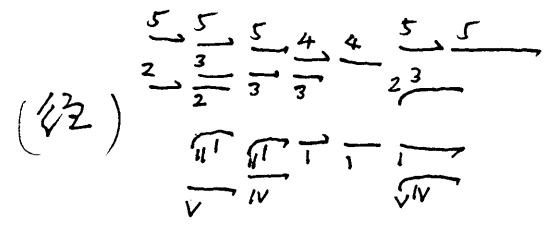 5 5 5 4 4 5 5
2 3 3 3 2 3
2
(经)
II I II I I I I
V IV V IV